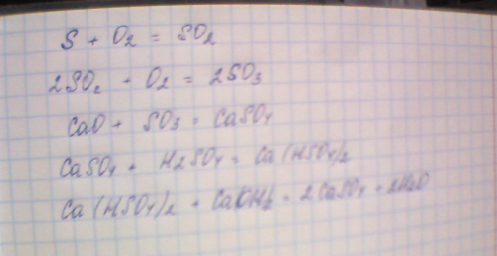 S + O2 = SO2
2SO2 + O2 = 2SO3
CaO + SO3 = CaSO4
CaSO4 + H2SO4 = Ca(HSO4)2
Ca(HSO4)2 + Ca(OH)2 = 2CaSO4 + 2H2O